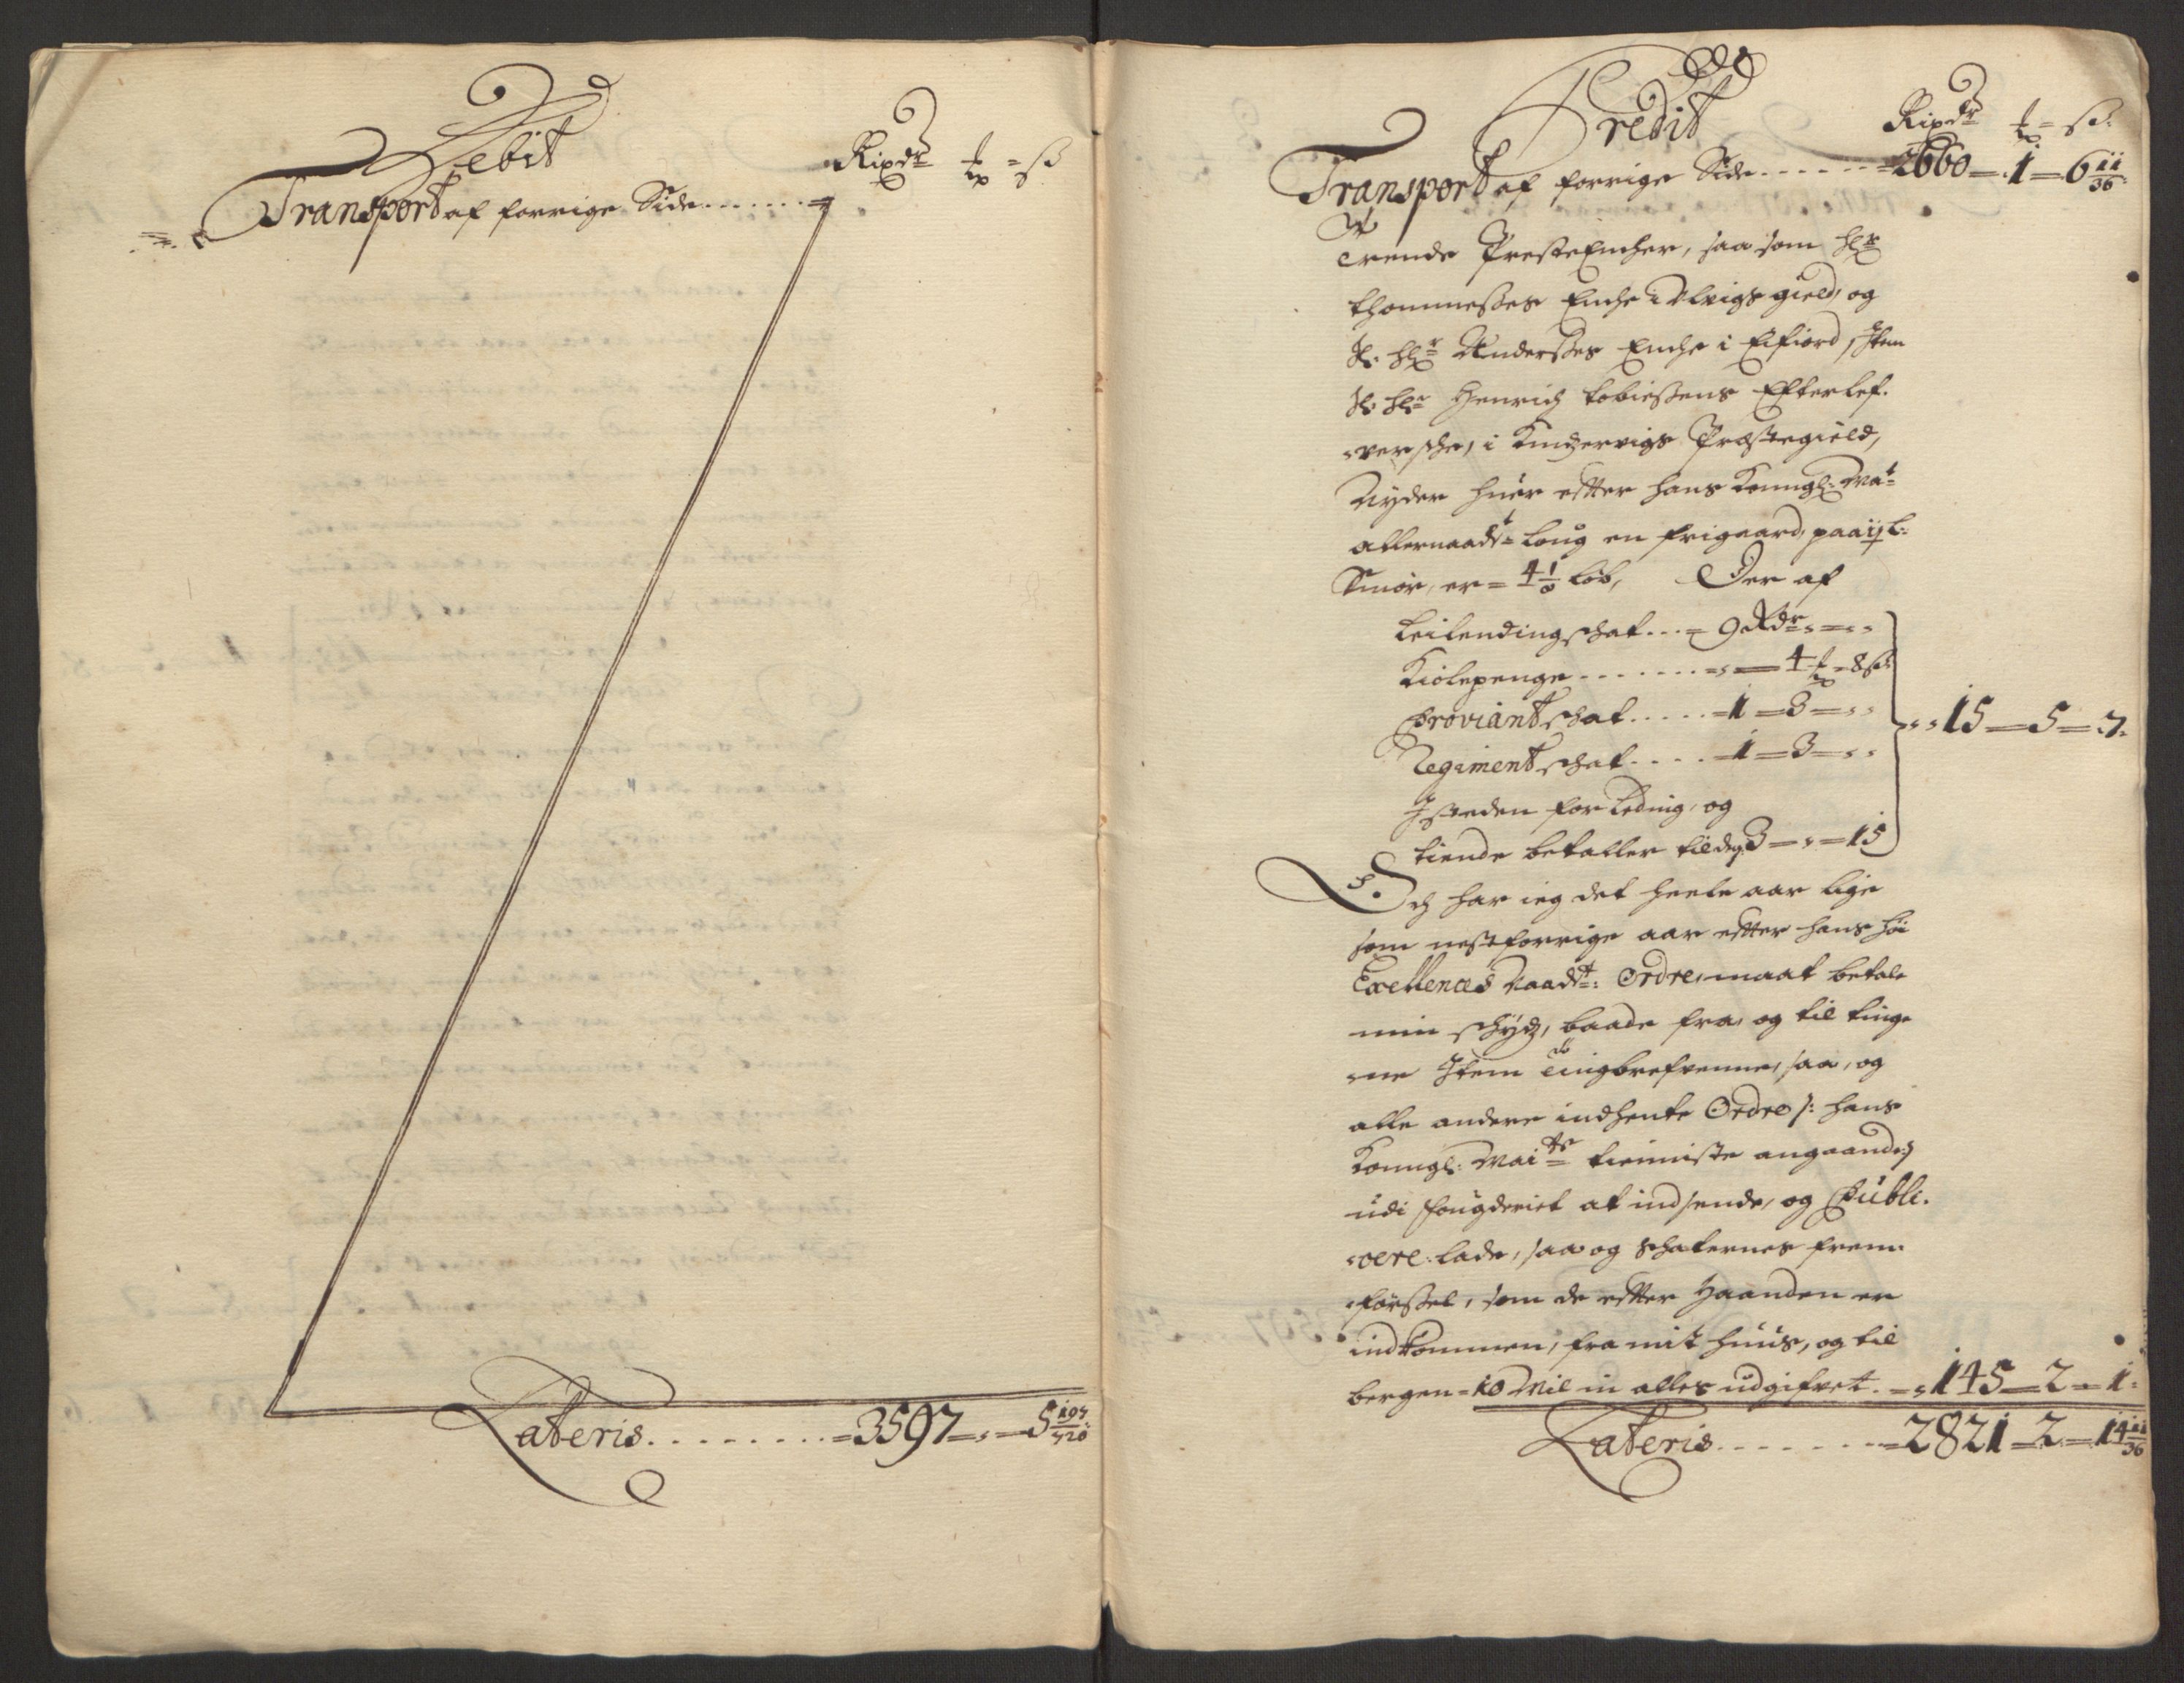 Debit
Rixdr ₰ = ß
Transport af forrige Side
Lateris = 3597 = " = 5 107/720
Credit
Rixdr ₰ = ß
Transport af forrige Side = 2660 = 1 = 6 11/36
Trende PresteEncher, saa som Hr
thommeßes Enche i Ulvigs gield, og
Sl: Hr Anderßes Enche i Eifiord, Item
Sl: Hr Henrich tobießens Efterlef-
versche, i Kindzervigs Præstegield,
Nyder huer efter hans Kongl: Mat
allernaadt loug en frigaard, paa 1½ L:
Smör, er = 4½ löb, Der af
Leilending schat = 9 Rdr = "
Kiölepenge = " = 4 ₰ = 8 ß
Proviant schat = 1 = 3 = "
Regiment schat = 1 = 3 = "
Isteden for Leding, og
tiende betaller till dg 3 = " = 15
" 15 = 5 = 7
Och har ieg det heele aar lige
som nestforrige aar efter hans höi
Excellences Naadt: Ordre, maat betale
min schydz, baade fra, og til tinge
ne Item Tingbrefvenne, saa, og
alle andere indhente Ordre /: hans
Kongl: Maits tienniste angaande:/
udi fougderiet at indsende, og Publi-
cere lade, saa og schaternes frem
förßel, som de efter Haanden er
indkommen, fra mit huus, og til
bergen = 10 Mil in alles udgifvet = " 145 = 2 = 1
Lateris = 2821 = 2 = 14 11/36